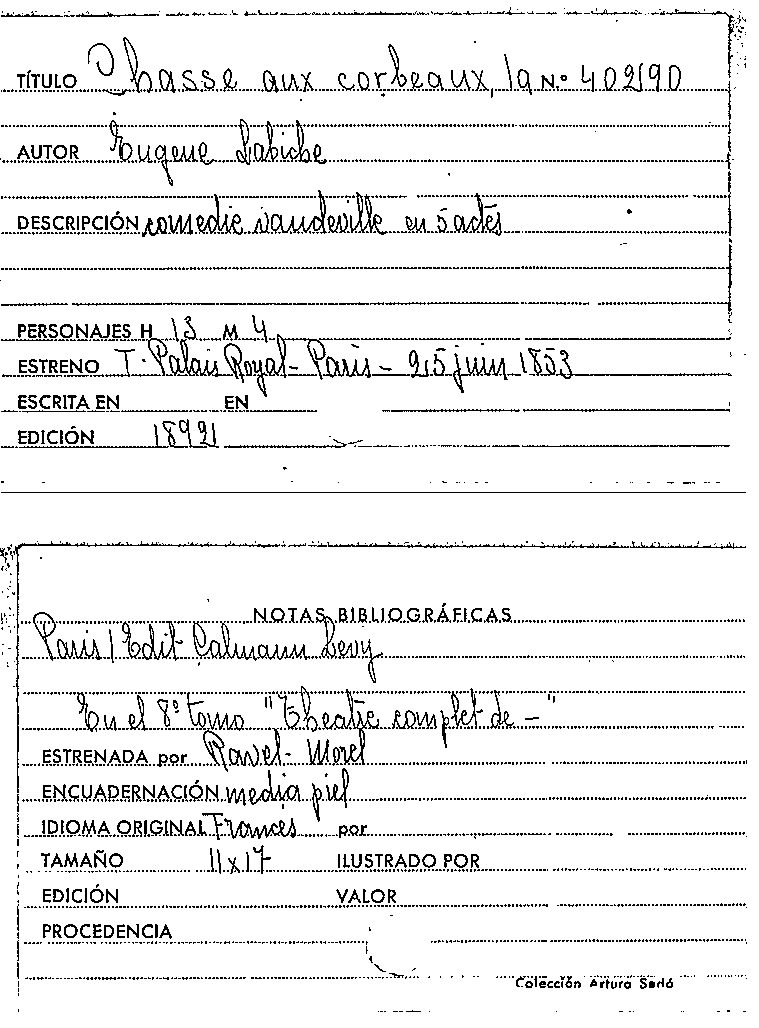 TÍTULO Chasse aux corbeaux, la N.º 40290
AUTOR Eugene Labiche
DESCRIPCIÓN comedie vaudeville en 5 actes
PERSONAJES H 13 M 4
ESTRENO T. Palais Royal - Paris - 25 juin 1853
ESCRITA EN EN
EDICIÓN 1892
NOTAS BIBLIOGRÁFICAS
Paris / Edit Calmann Levy
En el 8º tomo "Theatre complet de - "
ESTRENADA por Ravel - Morel
ENCUADERNACIÓN media piel
IDIOMA ORIGINAL Frances por
TAMAÑO 11x17 ILUSTRADO POR
EDICIÓN VALOR
PROCEDENCIA
Colección Arturo Sedó